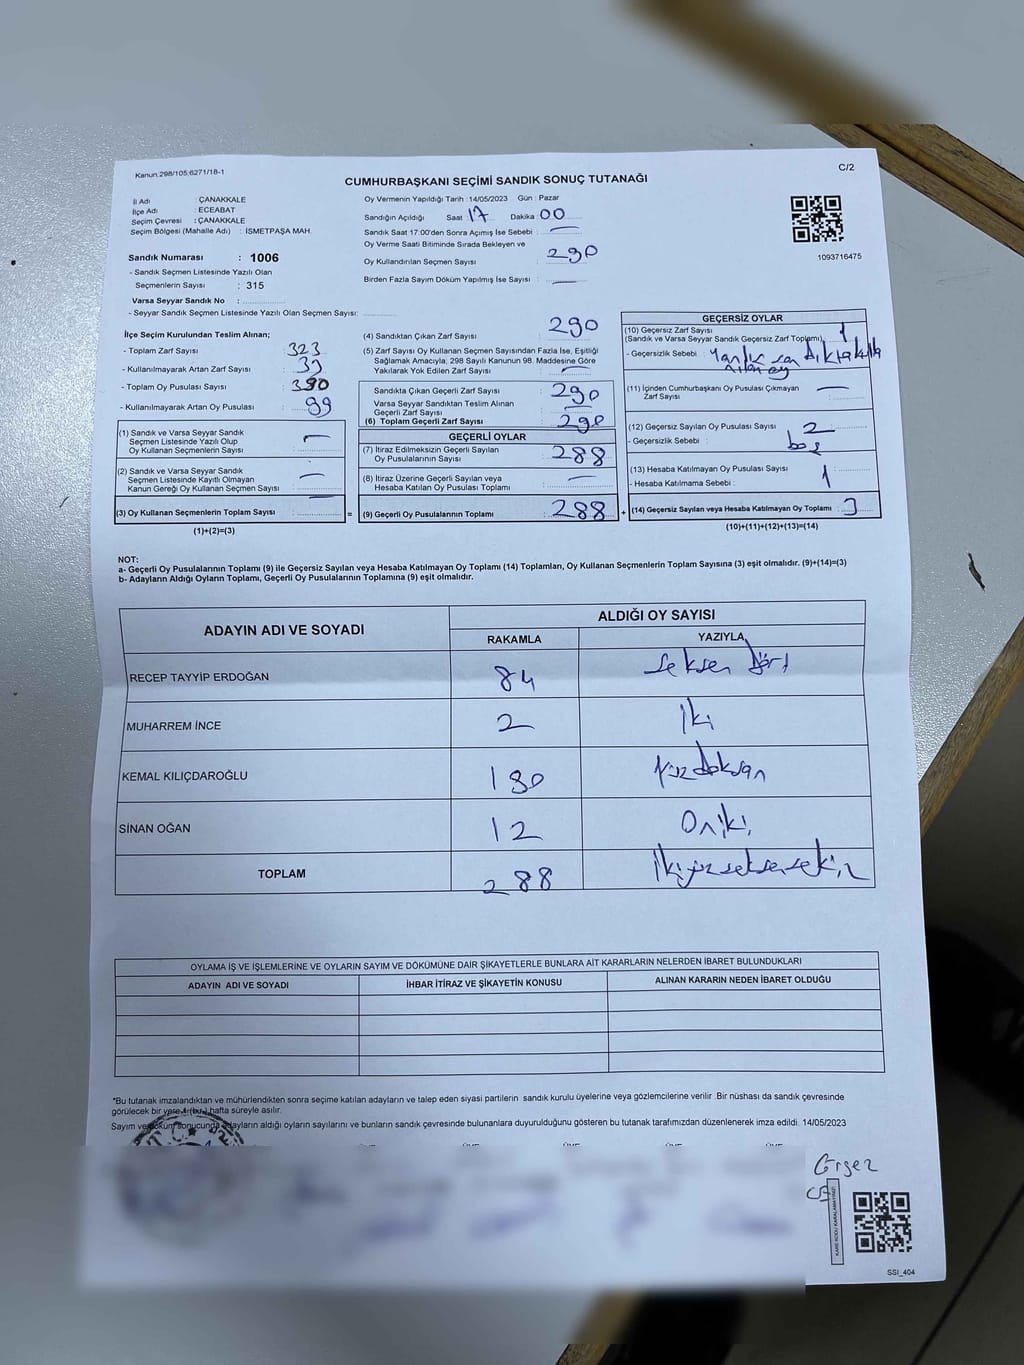 Kanun:298/105;6271/18-1
C/2
CUMHURBAŞKANI SEÇİMİ SANDIK SONUÇ TUTANAĞI
İl Adı : ÇANAKKALE
İlçe Adı : ECEABAT
Seçim Çevresi : ÇANAKKALE
Seçim Bölgesi (Mahalle Adı) : İSMETPAŞA MAH.
Sandık Numarası : 1006
- Sandık Seçmen Listesinde Yazılı Olan
Seçmenlerin Sayısı : 315
Varsa Seyyar Sandık No :
- Seyyar Sandık Seçmen Listesinde Yazılı Olan Seçmen Sayısı:
Oy Vermenin Yapıldığı Tarih : 14/05/2023 Gün : Pazar
Sandığın Açıldığı Saat 17 Dakika 00
Sandık Saat 17:00'den Sonra Açımış İse Sebebi : —
Oy Verme Saati Bitiminde Sırada Bekleyen ve
Oy Kullandırılan Seçmen Sayısı : 290
Birden Fazla Sayım Döküm Yapılmış İse Sayısı : —
1093716475
İlçe Seçim Kurulundan Teslim Alınan;
- Toplam Zarf Sayısı : 323
- Kullanılmayarak Artan Zarf Sayısı : 33
- Toplam Oy Pusulası Sayısı : 390
- Kullanılmayarak Artan Oy Pusulası : 99
(1) Sandık ve Varsa Seyyar Sandık
Seçmen Listesinde Yazılı Olup
Oy Kullanan Seçmenlerin Sayısı : —
(2) Sandık ve Varsa Seyyar Sandık
Seçmen Listesinde Kayıtlı Olmayan
Kanun Gereği Oy Kullanan Seçmen Sayısı : —
(3) Oy Kullanan Seçmenlerin Toplam Sayısı : —
(1)+(2)=(3)
=
(4) Sandıktan Çıkan Zarf Sayısı : 290
(5) Zarf Sayısı Oy Kullanan Seçmen Sayısından Fazla İse, Eşitliği
Sağlamak Amacıyla, 298 Sayılı Kanunun 98. Maddesine Göre
Yakılarak Yok Edilen Zarf Sayısı : —
Sandıkta Çıkan Geçerli Zarf Sayısı : 290
Varsa Seyyar Sandıktan Teslim Alınan
Geçerli Zarf Sayısı : —
(6) Toplam Geçerli Zarf Sayısı : 290
GEÇERLİ OYLAR
(7) İtiraz Edilmeksizin Geçerli Sayılan
Oy Pusulalarının Sayısı : 288
(8) İtiraz Üzerine Geçerli Sayılan veya
Hesaba Katılan Oy Pusulası Toplamı : —
(9) Geçerli Oy Pusulalarının Toplamı : 288
+
GEÇERSİZ OYLAR
(10) Geçersiz Zarf Sayısı
(Sandık ve Varsa Seyyar Sandık Geçersiz Zarf Toplamı) : 1
- Geçersizlik Sebebi :
(11) İçinden Cumhurbaşkanı Oy Pusulası Çıkmayan
Zarf Sayısı : —
(12) Geçersiz Sayılan Oy Pusulası Sayısı : 2
- Geçersizlik Sebebi : boş
(13) Hesaba Katılmayan Oy Pusulası Sayısı : 1
- Hesaba Katılmama Sebebi :
(14) Geçersiz Sayılan veya Hesaba Katılmayan Oy Toplamı : 3
(10)+(11)+(12)+(13)=(14)
NOT:
a- Geçerli Oy Pusulalarının Toplamı (9) ile Geçersiz Sayılan veya Hesaba Katılmayan Oy Toplamı (14) Toplamları, Oy Kullanan Seçmenlerin Toplam Sayısına (3) eşit olmalıdır. (9)+(14)=(3)
b- Adayların Aldığı Oyların Toplamı, Geçerli Oy Pusulalarının Toplamına (9) eşit olmalıdır.
ADAYIN ADI VE SOYADI
ALDIĞI OY SAYISI
RAKAMLA YAZIYLA
RECEP TAYYİP ERDOĞAN 84 Seksen Dört
MUHARREM İNCE 2 İki
KEMAL KILIÇDAROĞLU 190 Yüz doksan
SİNAN OĞAN 12 Oniki
TOPLAM 288 İkiyüzseksensekiz
OYLAMA İŞ VE İŞLEMLERİNE VE OYLARIN SAYIM VE DÖKÜMÜNE DAİR ŞİKAYETLERLE BUNLARA AİT KARARLARIN NELERDEN İBARET BULUNDUKLARI
ADAYIN ADI VE SOYADI İHBAR İTİRAZ VE ŞİKAYETİN KONUSU ALINAN KARARIN NEDEN İBARET OLDUĞU
*Bu tutanak imzalandıktan ve mühürlendikten sonra seçime katılan adayların ve talep eden siyasi partilerin sandık kurulu üyelerine veya gözlemcilerine verilir .Bir nüshası da sandık çevresinde
görülecek bir yere 1 (bir) hafta süreyle asılır.
Sayım ve döküm sonucunda adayların aldığı oyların sayılarını ve bunların sandık çevresinde bulunanlara duyurulduğunu gösteren bu tutanak tarafımızdan düzenlenerek imza edildi. 14/05/2023
KARE KODU KARALAMAYINIZ!
SSI_404